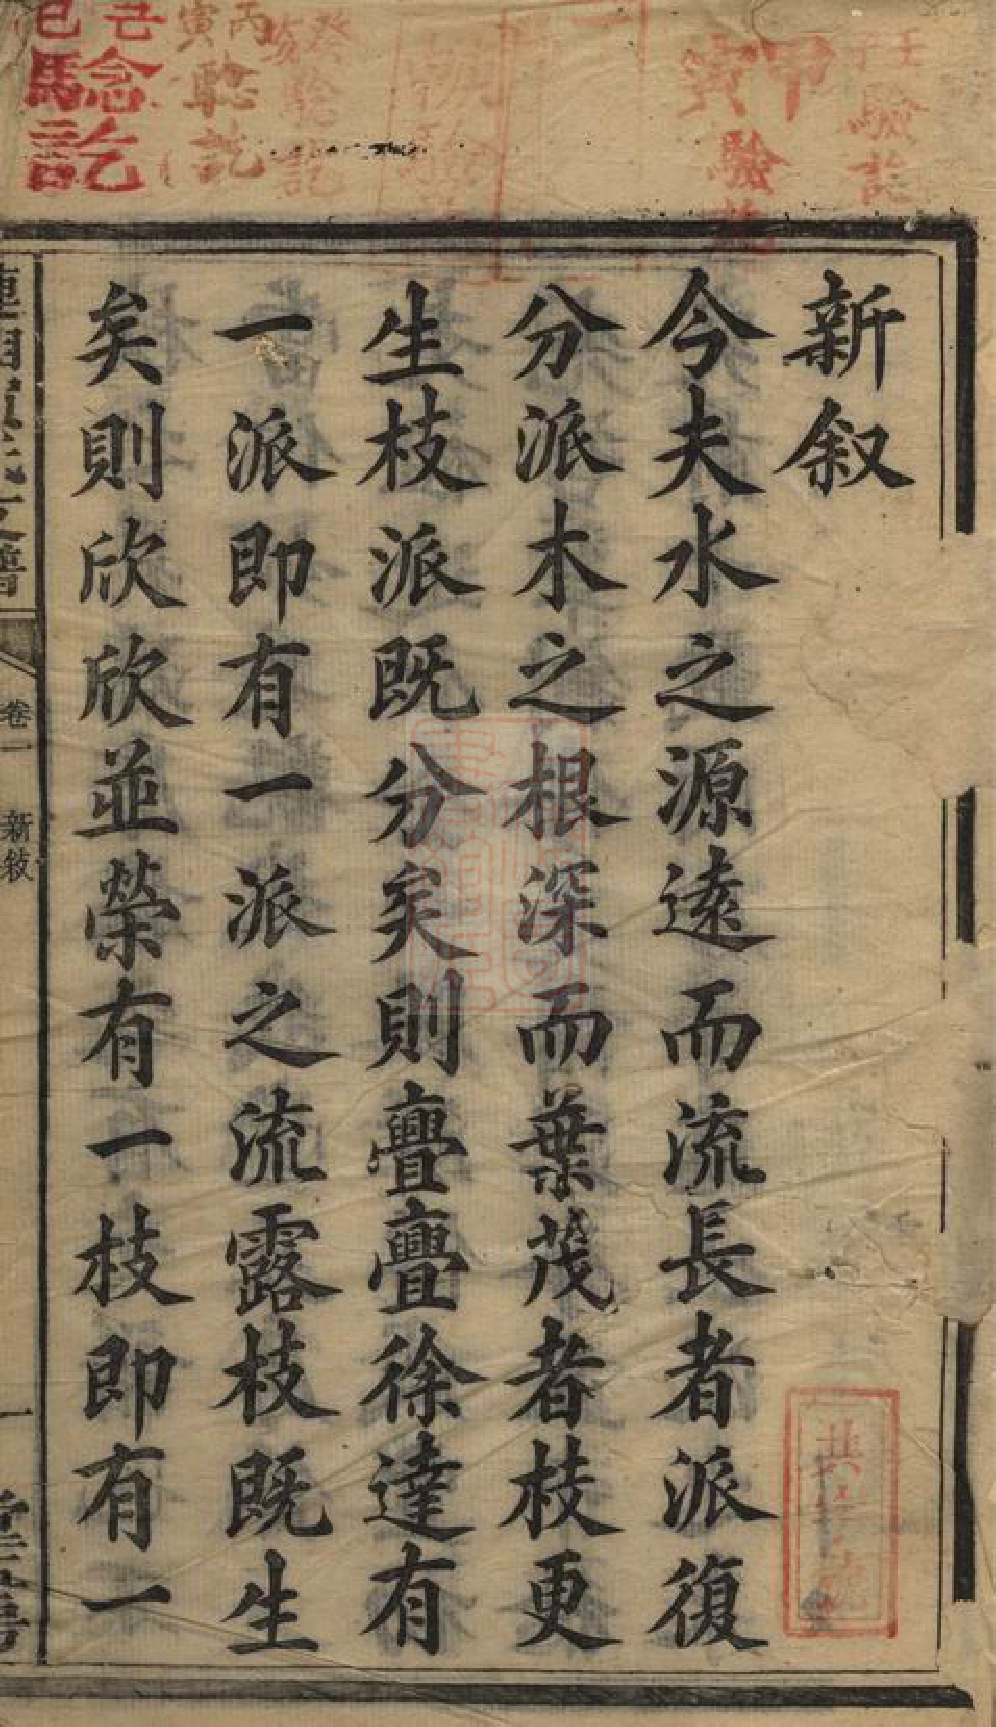 新叙
今夫水之源遠而流長者派復
分派木之根深而葉茂者枝更
生枝派既分矣則亹亹徐達有
一派即有一派之流露枝既生
矣則欣欣並榮有一枝即有一
卷一 新敍 一
壬 驗訖
甲寅驗
癸 驗訖
丙寅驗訖
己巳驗訖